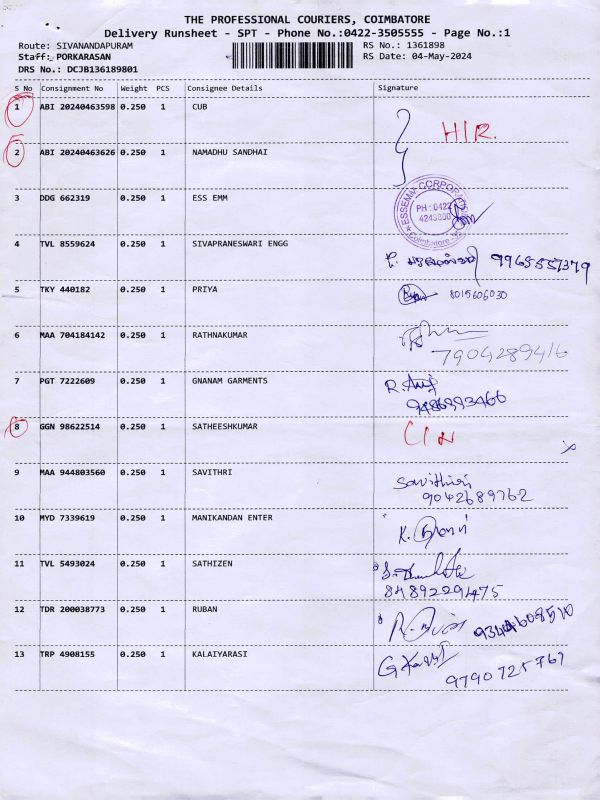 THE PROFESSIONAL COURIERS, COIMBATORE
Delivery Runsheet - SPT - Phone No.:0422-3505555 - Page No.:1
Route: SIVANANDAPURAM
Staff: PORKARASAN
DRS No.: DCJB136189801
RS No.: 1361898
RS Date: 04-May-2024
S No Consignment No Weight PCS Consignee Details Signature
1 ABI 20240463598 0.250 1 CUB
H/R.
2 ABI 20240463626 0.250 1 NAMADHU SANDHAI
3 DDG 662319 0.250 1 ESS EMM
ESSEMM CORPORATION
PH : 0422
4243800
Coimbatore
4 TVL 8559624 0.250 1 SIVAPRANESWARI ENGG
9965557379
5 TKY 440182 0.250 1 PRIYA 8015606030
6 MAA 704184142 0.250 1 RATHNAKUMAR
7904289416
7 PGT 7222609 0.250 1 GNANAM GARMENTS
9486993466
8 GGN 98622514 0.250 1 SATHEESHKUMAR
9 MAA 944803560 0.250 1 SAVITHRI
Savithiri
9042689762
10 MYD 7339619 0.250 1 MANIKANDAN ENTER
11 TVL 5493024 0.250 1 SATHIZEN
8489229475
12 TDR 200038773 0.250 1 RUBAN
9344608510
13 TRP 4908155 0.250 1 KALAIYARASI
9790725767